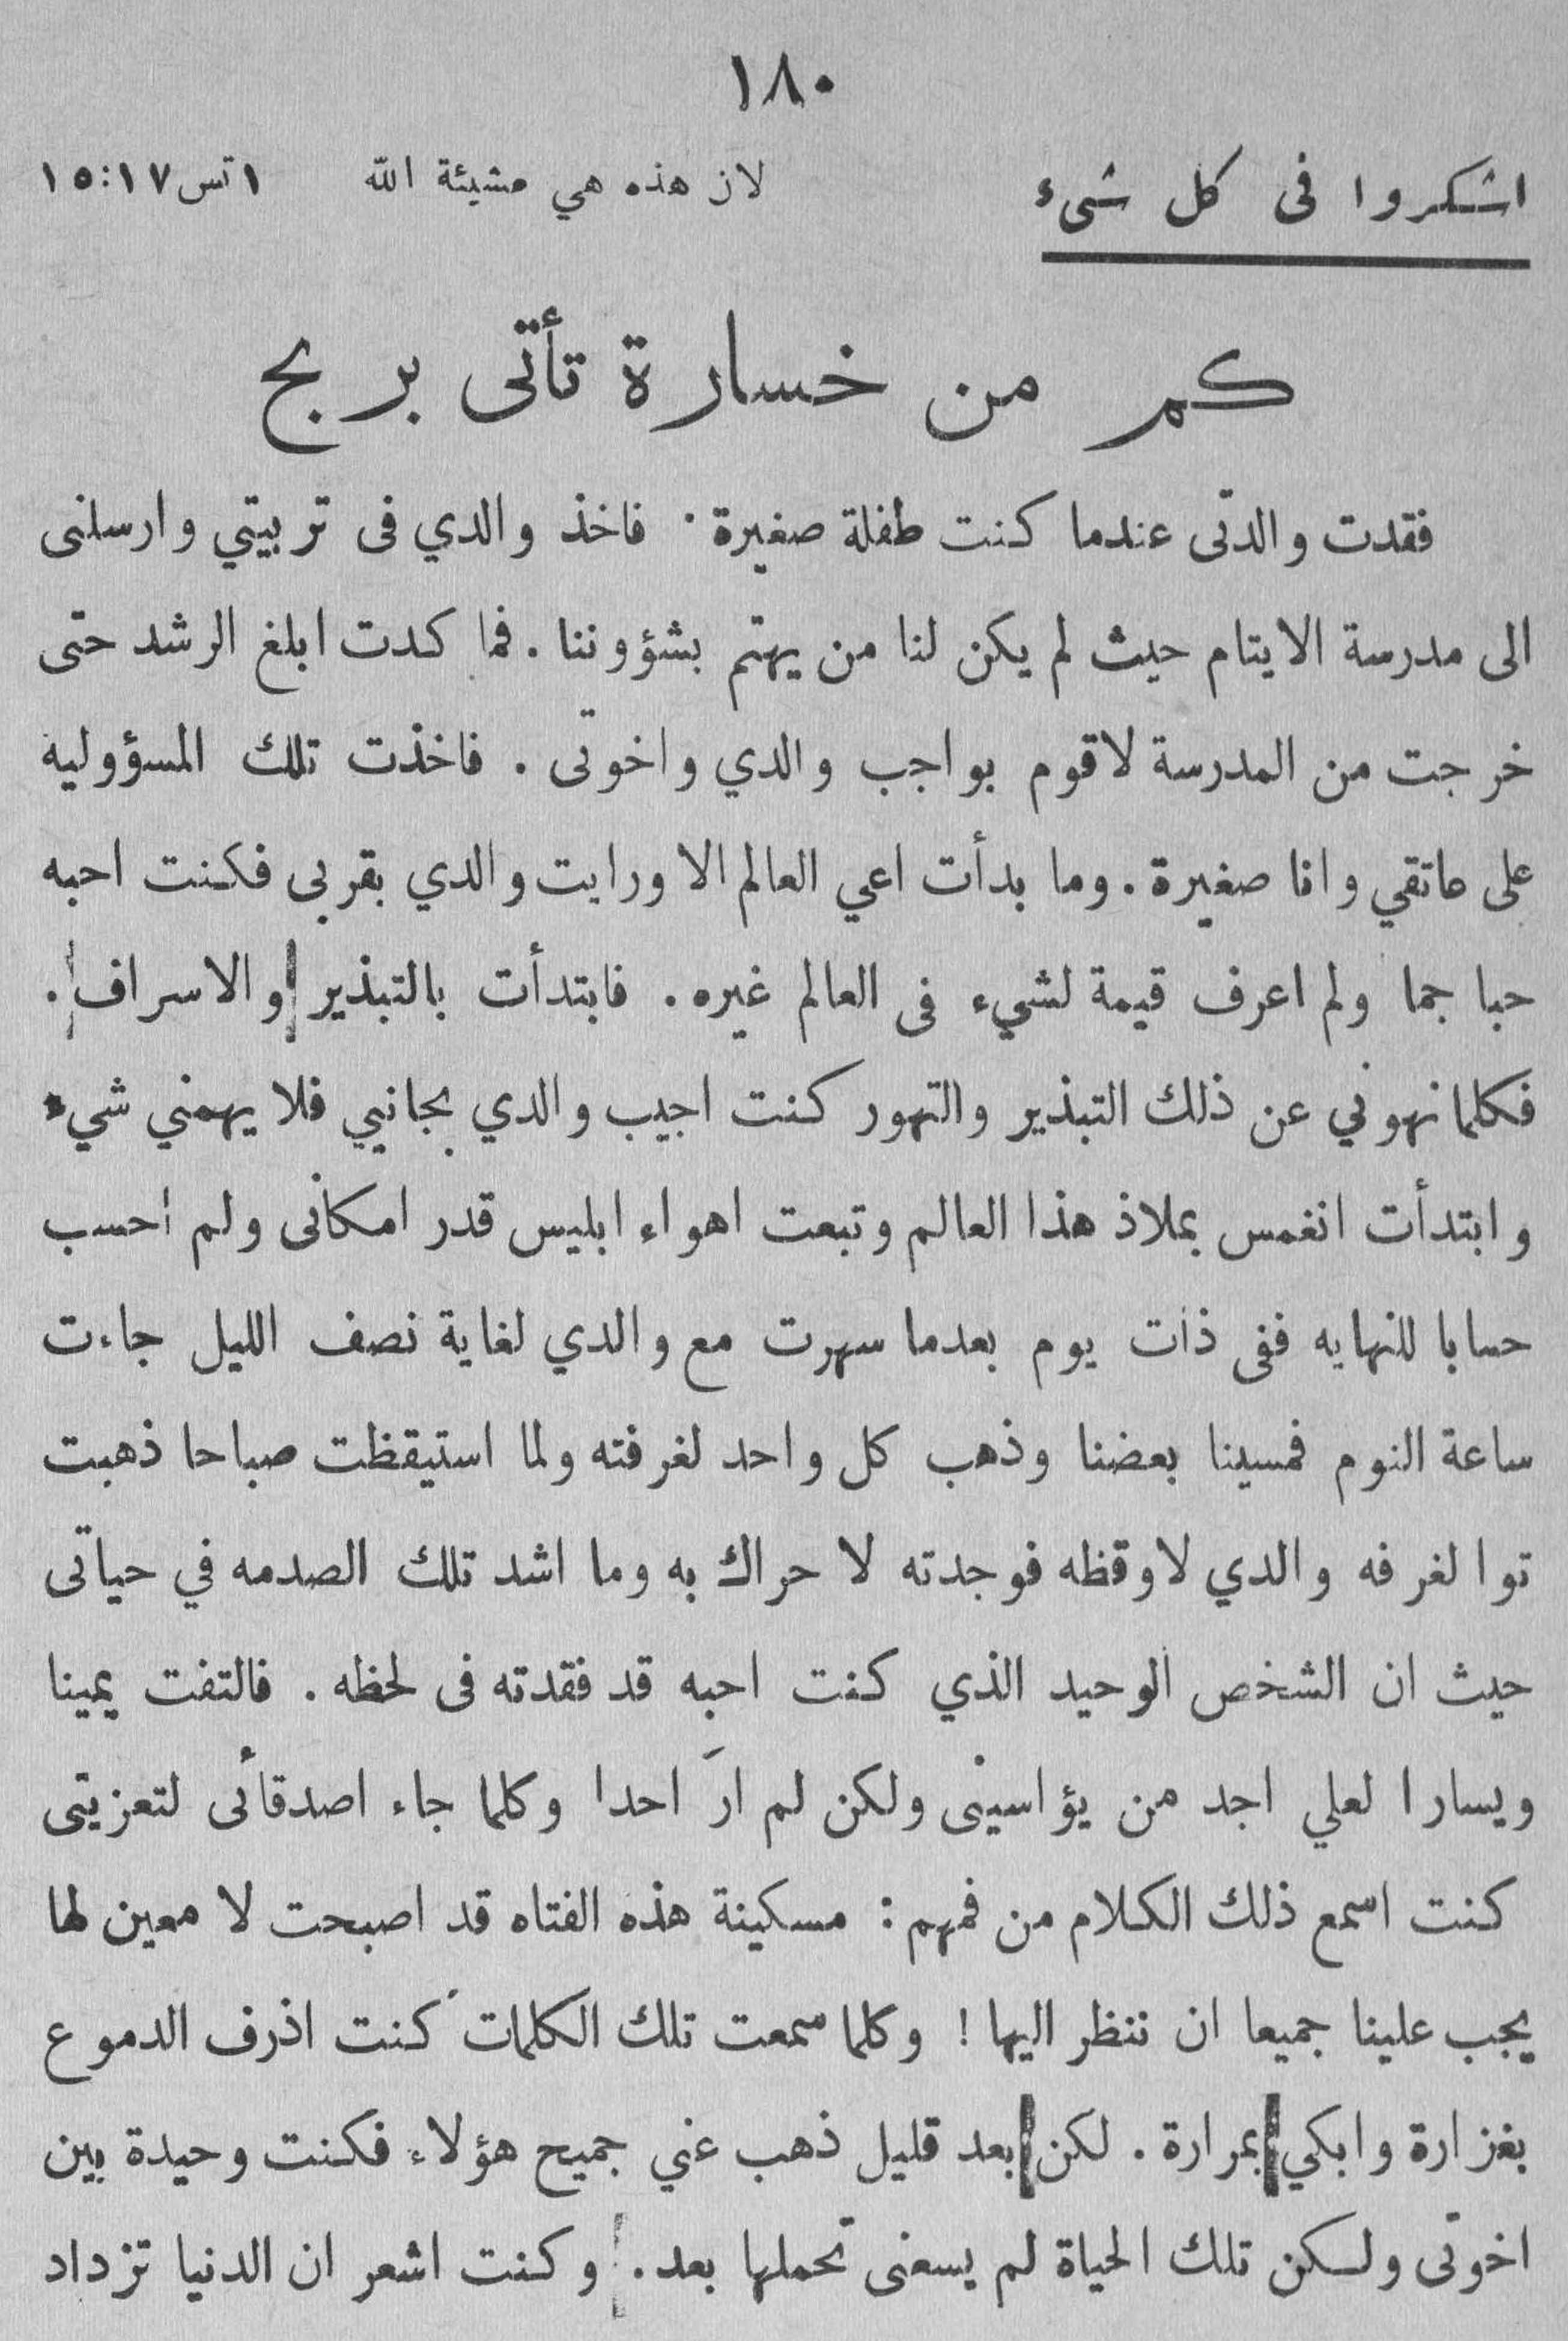 ١٨٠
اشكروا فى كل شىء لان هذه هي مشيئة الله ١تس١٧:١٥
كم من خسارة تأتى بربح
فقدت والدتى عندما كنت طفلة صغيرة. فاخذ والدي فى تربيتي وارسلنى
الى مدرسة الايتام حيث لم يكن لنا من يهتم بشؤوننا. فما كدت ابلغ الرشد حتى
خرجت من المدرسة لاقوم بواجب والدي واخوتى. فاخذت تلك المسؤوليه
على عاتقي وانا صغيرة. وما بدأت اعي العالم الا ورايت والدي بقربى فكنت احبه
حبا جما ولم اعرف قيمة لشيء فى العالم غيره. فابتدأت بالتبذير والاسراف.
فكلما نهوني عن ذلك التبذير والتهور كنت اجيب والدي بجانبي فلا يهمني شيء
وابتدأت انغمس بملاذ هذا العالم وتبعت اهواء ابليس قدر امكانى ولم احسب
حسابا للنهايه ففى ذات يوم بعدما سهرت مع والدي لغاية نصف الليل جاءت
ساعة النوم فمسينا بعضنا وذهب كل واحد لغرفته ولما استيقظت صباحا ذهبت
توا لغرفه والدي لاوقظه فوجدته لا حراك به وما اشد تلك الصدمه في حياتى
حيث ان الشخص الوحيد الذي كنت احبه قد فقدته فى لحظه. فالتفت يمينا
ويسارا لعلي اجد من يؤاسينى ولكن لم ارَ احدا وكلما جاء اصدقائى لتعزيتى
كنت اسمع ذلك الكلام من فمهم: مسكينة هذه الفتاه قد اصبحت لا معين لها
يجب علينا جميعا ان ننظر اليها! وكلما سمعت تلك الكلمات كنت اذرف الدموع
بغزارة وابكي بمرارة. لكن بعد قليل ذهب عني جميع هؤلاء فكنت وحيدة بين
اخوتى ولكن تلك الحياة لم يسعنى تحملها بعد. وكنت اشعر ان الدنيا تزداد